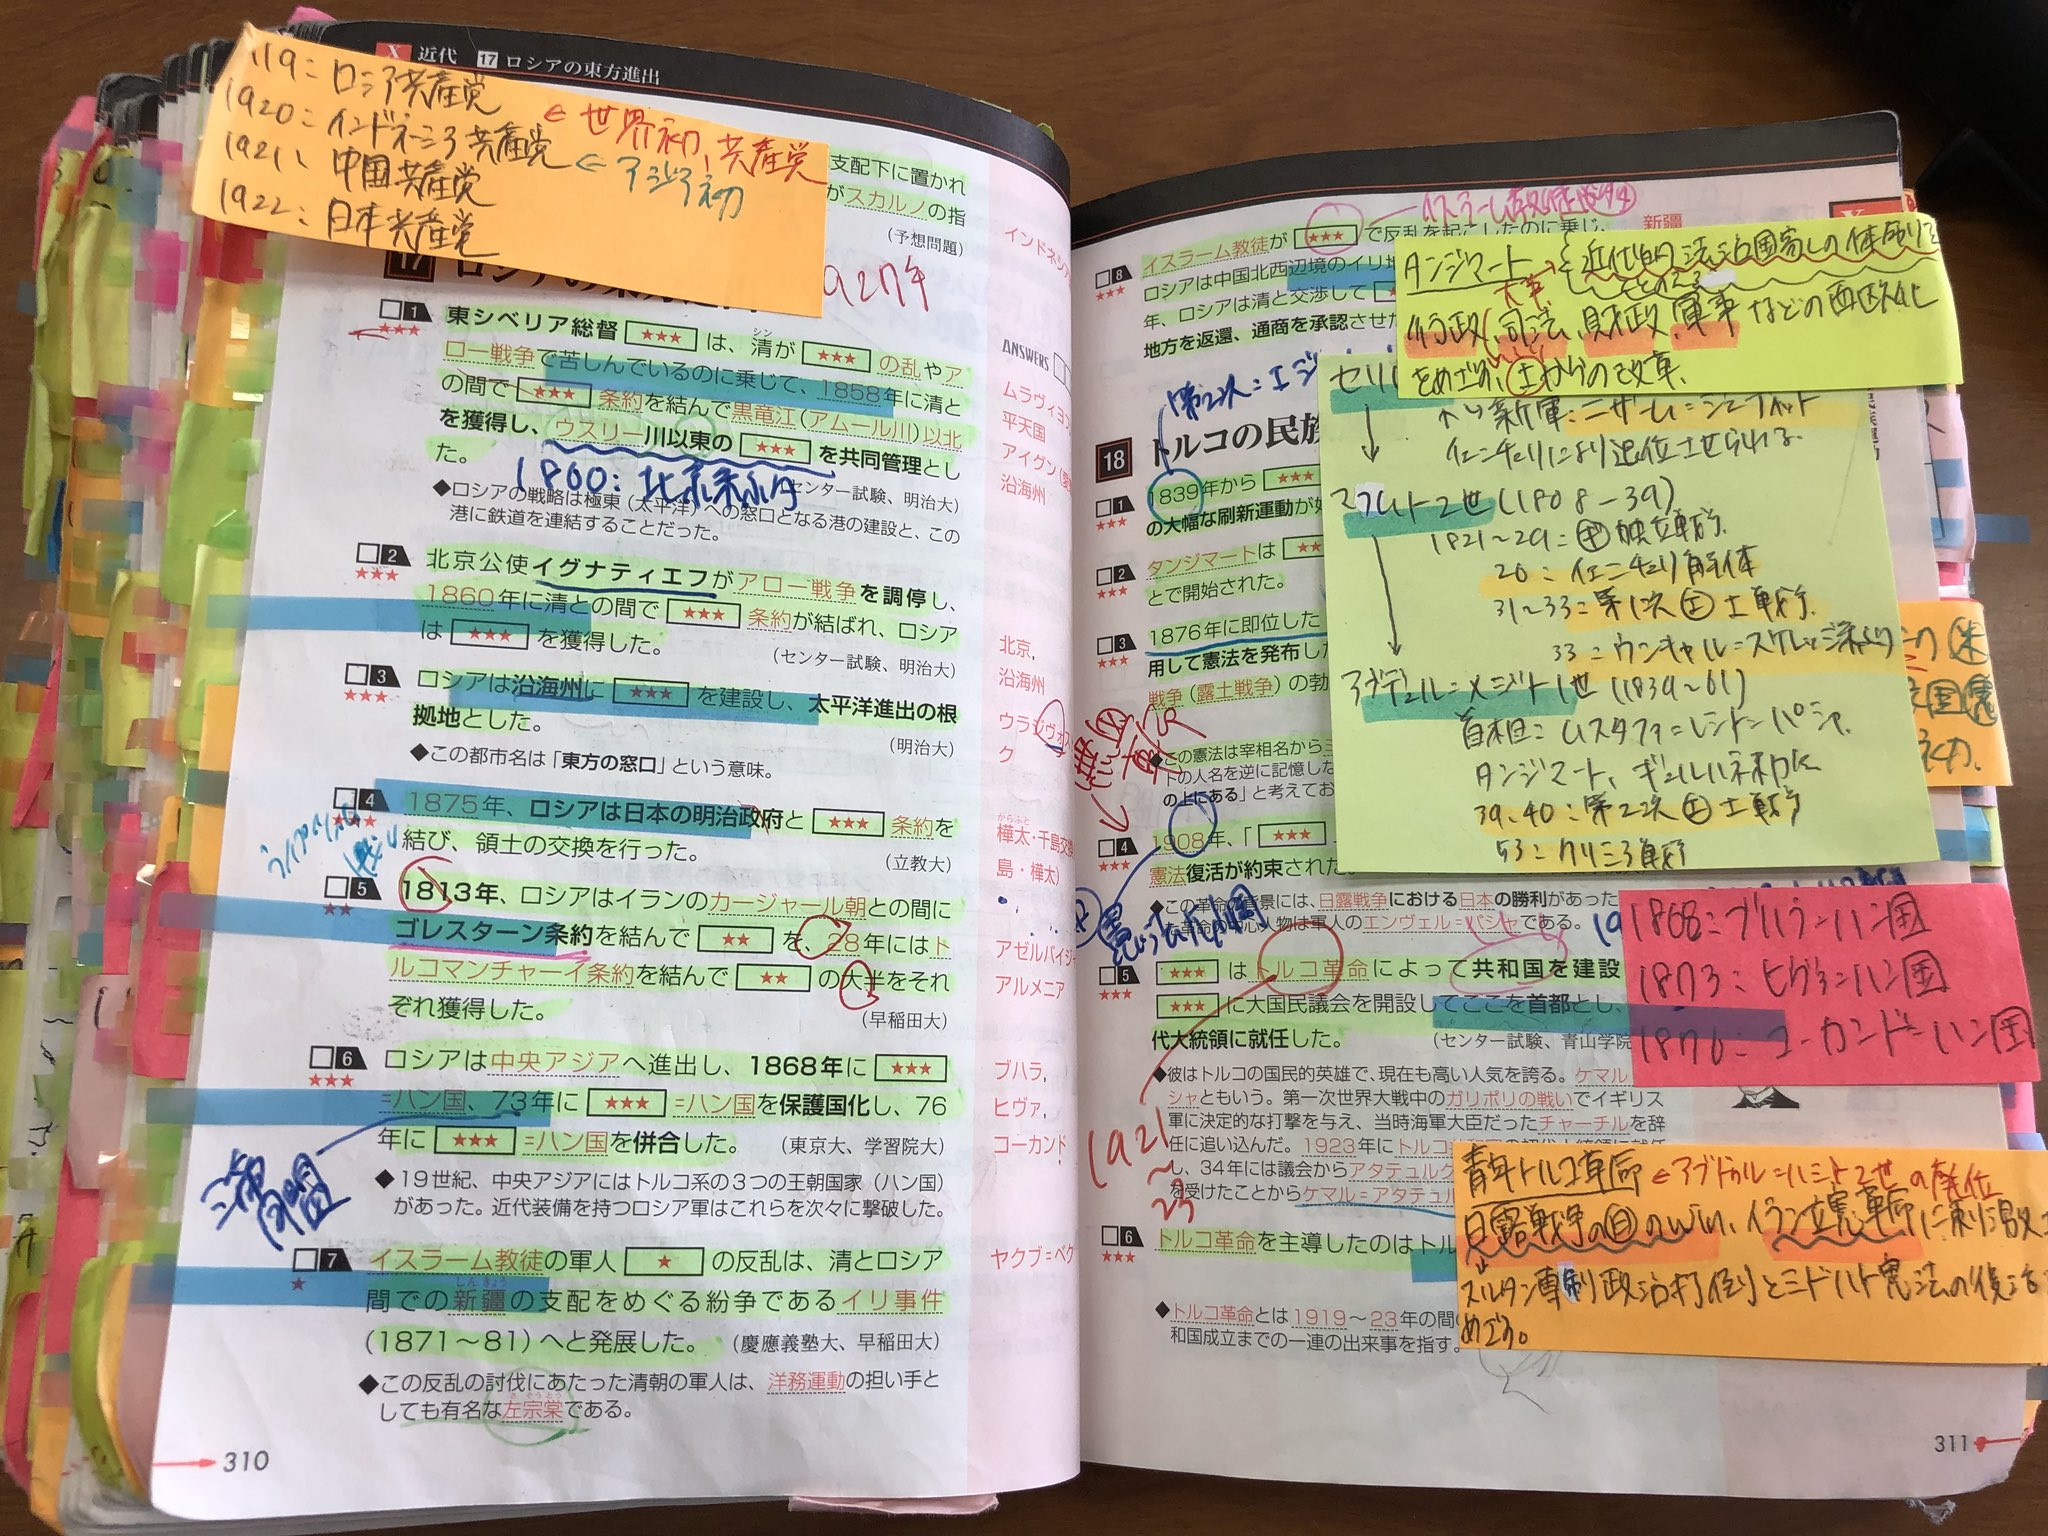 X 近代 17 ロシアの東方進出
119：ロシア共産党
1920：インドネシア共産党
←世界初、共産党
1921、中国共産党 ←アジア初
1922：日本共産党
支配下に置かれ
がスカルノの指
(予想問題)
インドネシ
17
1 東シベリア総督 ★★★ は、清が ★★★ の乱やア
ロー戦争で苦しんでいるのに乗じて、1858年に清と
の間で ★★★ 条約を結んで黒竜江(アムール川)以北
を獲得し、ウスリー川以東の ★★★ を共同管理とし
た。
1860：北京条約
センター試験、明治大)
◆ロシアの戦略は極東(太平洋)への窓口となる港の建設と、この
港に鉄道を連結することだった。
2 北京公使イグナティエフがアロー戦争を調停し、
1860年に清との間で ★★★ 条約が結ばれ、ロシア
は ★★★ を獲得した。
(センター試験、明治大)
3 ロシアは沿海州に ★★★ を建設し、太平洋進出の根
拠地とした。
(明治大)
◆この都市名は「東方の窓口」という意味。
4 1875年、ロシアは日本の明治政府と ★★★ 条約を
結び、領土の交換を行った。
(立教大)
5 1813年、ロシアはイランのカージャール朝との間に
ゴレスターン条約を結んで ★★ を、28年にはト
ルコマンチャーイ条約を結んで ★★ の大半をそれ
ぞれ獲得した。
(早稲田大)
6 ロシアは中央アジアへ進出し、1868年に ★★★
=ハン国、73年に ★★★ =ハン国を保護国化し、76
年に ★★★ =ハン国を併合した。
(東京大、学習院大)
◆19世紀、中央アジアにはトルコ系の3つの王朝国家(ハン国)
があった。近代装備を持つロシア軍はこれらを次々に撃破した。
7 イスラーム教徒の軍人 ★ の反乱は、清とロシア
間での新疆の支配をめぐる紛争であるイリ事件
(1871〜81)へと発展した。
(慶應義塾大、早稲田大)
◆この反乱の討伐にあたった清朝の軍人は、洋務運動の担い手と
しても有名な左宗棠である。
310
ANSWERS
ムラヴィヨフ
平天国
アイグン
沿海州
北京,
沿海州
ウラジヴォス
ク
樺太・千島交換
島・樺太)
アゼルバイジャ
アルメニア
ブハラ,
ヒヴァ,
コーカンド
ヤクブ=ベク
8 イスラーム教徒が ★★★ で反乱を起こしたのに乗じ、
ロシアは中国北西辺境のイリ地
年、ロシアは清と交渉して
地方を返還、通商を承認させた
新疆
タンジマート 近代的法治国家としての体裁
行政、司法、財政、軍事などの西欧化
をめざす、上からの改革。
新軍：ニザーム=ジェディット
イェニチェリにより退位させられる
マフムト2世(1808-39)
26：イェニチェリ解体
31〜33：第1次 土戦争
33：ウンキャル=スケレッシ条約
アブデュル=メジト1世(1839〜61)
首相：ムスタファ=レシト=パシャ
タンジマート、ギュルハネ勅令
39、40：第2次 土戦争
53：クリミア戦争
18 トルコの民族
1 1839年から ★★★
の大幅な刷新運動が
2 タンジマートは
とで開始された。
3 1876年に即位した
用して憲法を発布した
戦争(露土戦争)の勃
◆この憲法は宰相名から
トの人名を逆に記憶した
の上にある」と考えてお
4 1908年、「 ★★★
憲法復活が約束された。
◆この革命の背景には、日露戦争における日本の勝利があった
た革命の中心人物は軍人のエンヴェル=パシャである。
5 ★★★ はトルコ革命によって共和国を建設
★★★ に大国民議会を開設してここを首都とし、
代大統領に就任した。
(センター試験、青山学院
◆彼はトルコの国民的英雄で、現在も高い人気を誇る。ケマル
シャともいう。第一次世界大戦中のガリポリの戦いでイギリス
軍に決定的な打撃を与え、当時海軍大臣だったチャーチルを辞
任に追い込んだ。1923年にトルコ
し、34年には議会からアタテュルク
を受けたことからケマル=アタテュル
1921
〜
23
6 トルコ革命を主導したのはトル
◆トルコ革命とは1919〜23年の間
和国成立までの一連の出来事を指す。
1868：ブハラ=ハン国
1873：ヒヴァ=ハン国
1876：コーカンド=ハン国
青年トルコ革命 ←アブドゥル=ハミト2世の廃位
日露戦争の日のwin、イラン立憲革命に刺激
スルタン専制政治打倒とミドハト憲法の復活
めざす。
311